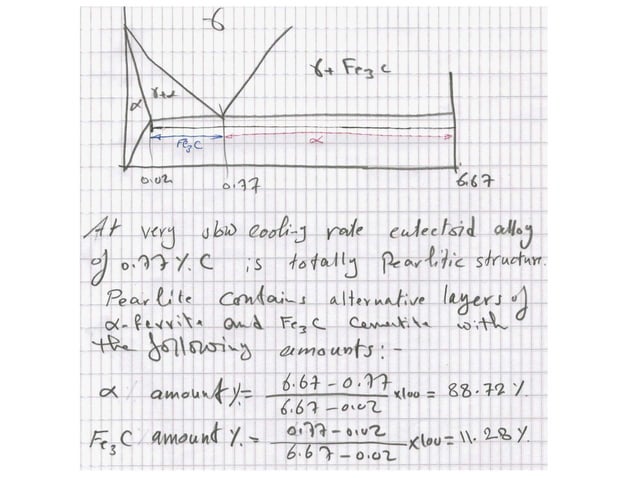 γ
γ + Fe3C
γ+α
α
Fe3C
α
0.02
0.77
6.67
At very slow cooling rate eutectoid alloy
of 0.77 %. C is totally Pearlitic structure.
Pearlite contains alternative layers of
α-ferrite and Fe3C Cementite with
the following amounts:-
α amount %= 6.67 - 0.77 / 6.67 - 0.02 x100 = 88.72 %.
Fe3C amount %.= 0.77 - 0.02 / 6.67 - 0.02 x100 = 11.28 %.